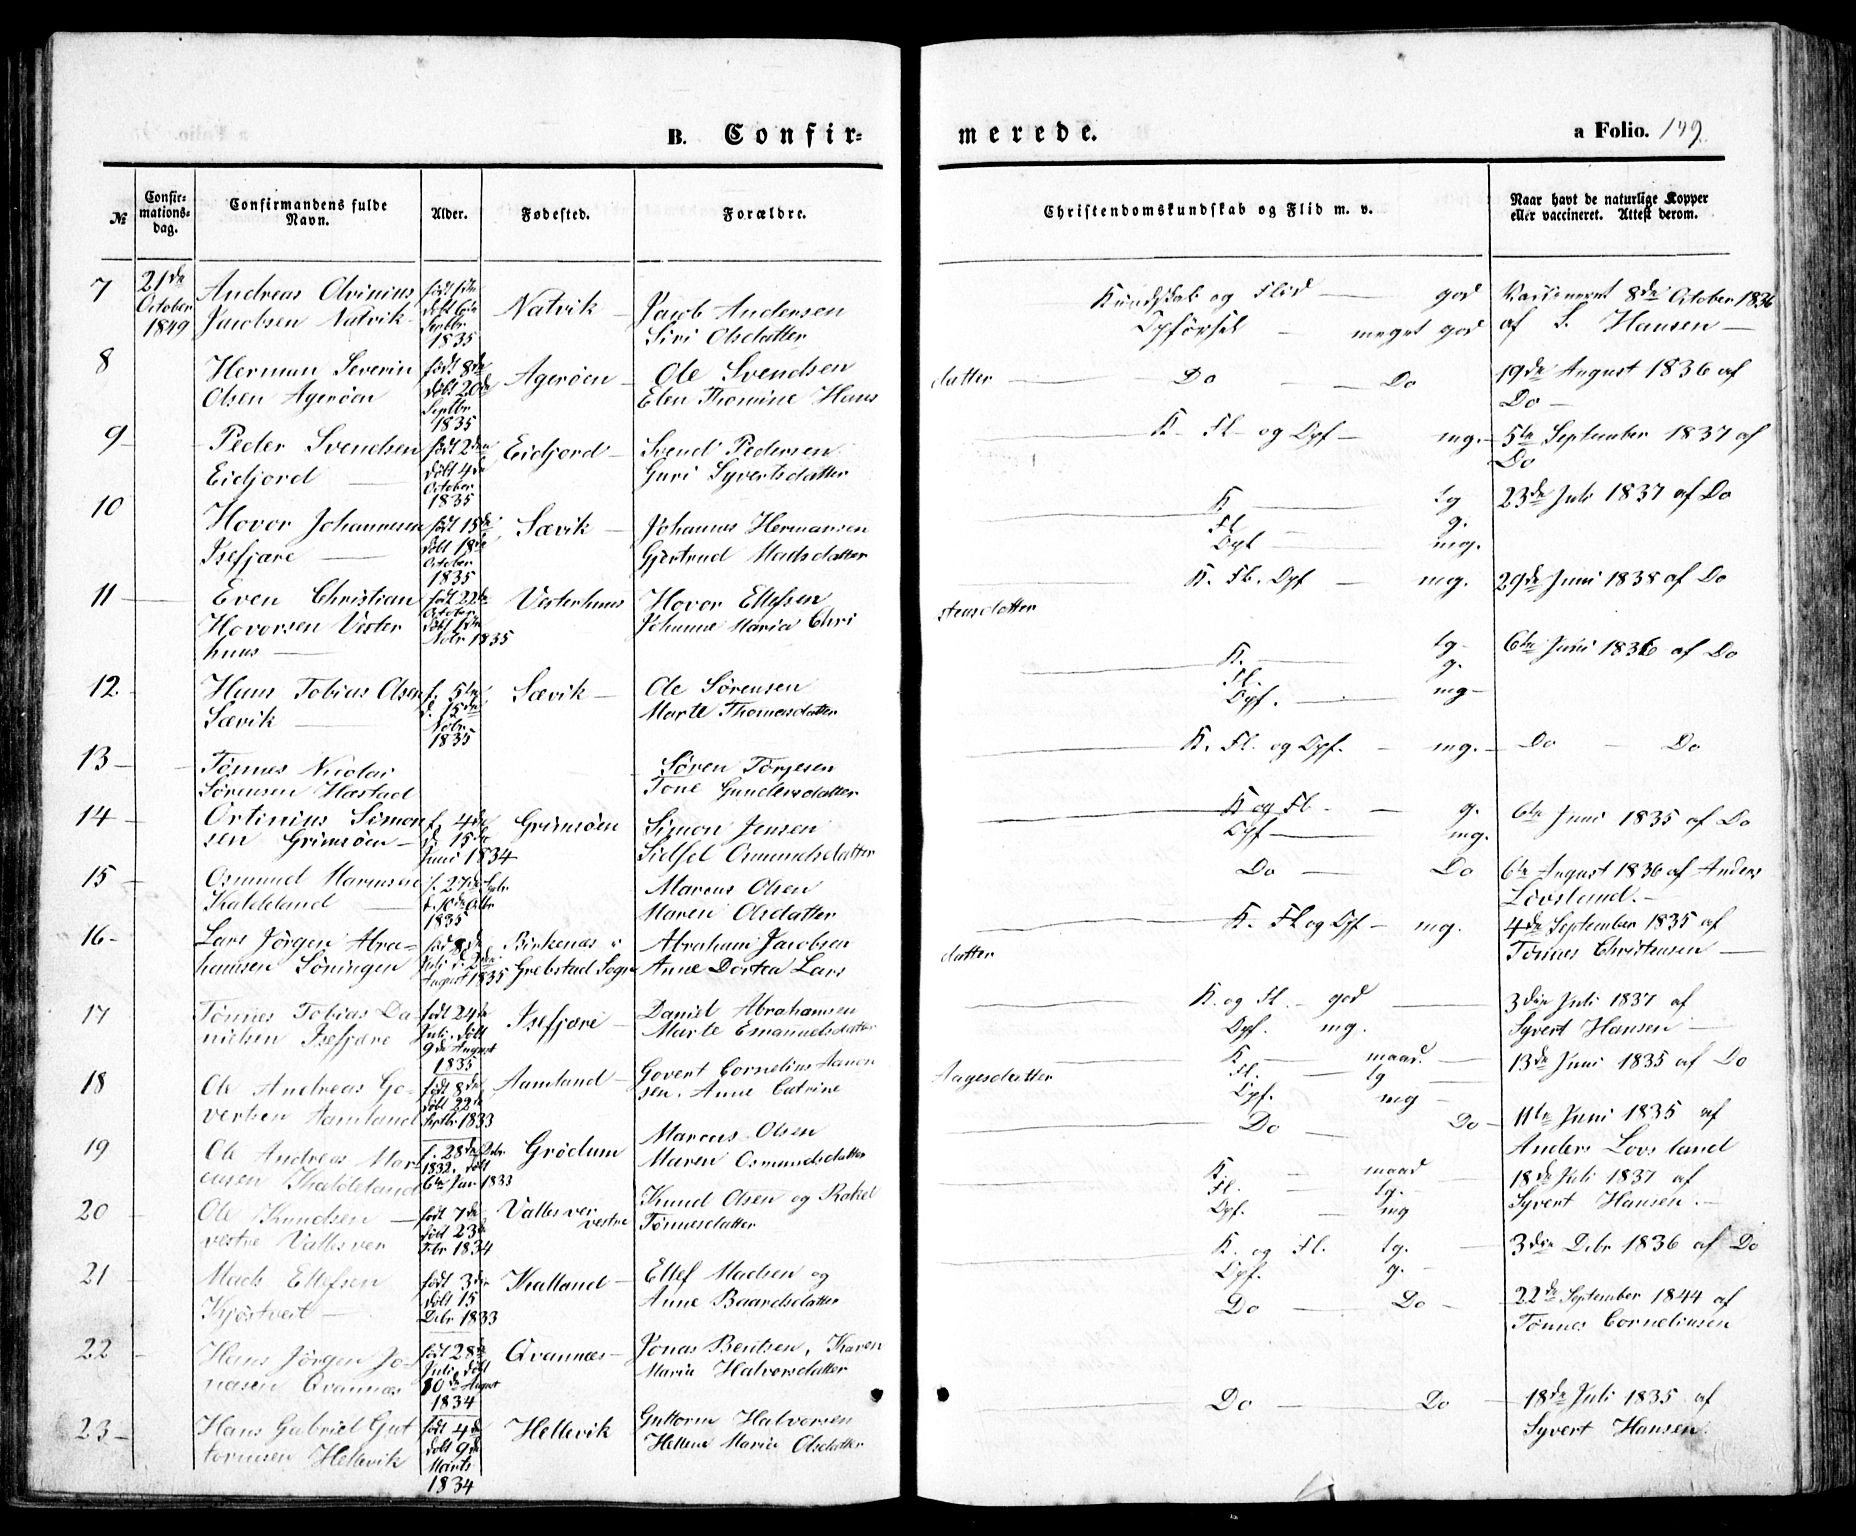 B. Confir=
merede.
a Folio. 149
№
Confir=
mations=
dag.
Confirmandens fulde
Navn.
Alder.
Fødested.
Forældre.
Christendomskundskab og Flid m. v.
Naar havt de naturlige Kopper
eller vaccineret. Attest derom.
7
21de
October
1849
Andreas Olvinius
Jacobsen Natvik
født 1ste
døbt 6te
Septbr
1835
Natvik
Jacob Andersen
Siri Olsdatter
Kundskab og Flid — god
Opførsel — meget god
Vaccineret 8de October 1836
af S. Hansen —
8
Herman Severin
Olsen Agerøen
født 8de
døbt 20de
Septbr
1835
Agerøen —
Ole Svendsen
Elen Thomine Hans
datter — Do — Do
19de August 1836 af
Do —
9
Peder Svendsen
Eidjord —
født 2den
døbt 4de
October
1835
Eidjord —
Svend Pedersen
Guri Syvertsdatter
K. Fl. og Opf — mg. —
5te September 1837 af
Do
10
Hovor Johannesen
Isefjære —
født 15de
døbt 18de
October
1835
Sævik —
Johannes Hermansen
Gjertrud Madsdatter
K — tg
Fl — g.
Opf — mg.
23de Juli 1837 af Do
11
Even Christian
Hovorsen Vester
huus —
født 22de
October
døbt 1ste
Nobr 1835
Vesterhuus
Hovor Ellefsen
Johanne Maria Chri
stensdatter
K. Fl. Opf — mg.
29de Juni 1838 af Do
12
Hans Tobias Olsen
Sævik —
f. 5te
d. 15de
Nobr.
1835
Sævik —
Ole Sørensen
Marte Thomasdatter
K. — tg.
Fl. — g.
Opf. — mg —
6te Juni 1836 af Do
13 —
Tønnes Nicolai
Sørensen Hæstad
Søren Torjesen
Tone Gundersdatter
K. Fl. og Opf. — mg. —
Do — Do
14 —
Ortinius Simon
sen Grimsøen —
f. 4de
d. 15de
Juni 1834
Grimsøen
Simon Jensen
Sidsel Osmundsdatter
K og Fl. — g.
Opf — mg.
6te Juni 1835 af Do
15
Osmund Marcusen
Kaldeland —
f. 27de Septbr
1835
Marcus Olsen
Maren Olsdatter
Do — Do
6te August 1836 af Anders
Lovsland. —
16 —
Lars Jørgen Abra=
hamsen Søningen
fød 8de
Juli d. 2den
August 1835
Birkenæs i
Grebstad Sogn
Abraham Jacobsen
Anne Dortea Lars
datter
K. Fl og Opf — mg.
4de September 1835 af
Tønnes Christensen —
17
Tønnes Tobias Da=
nielsen Isefjære
født 24de
Juli. døbt
9de August
1835
Isefjære —
Daniel Abrahamsen
Marte Emanuelsdatter
K. og Fl. — god —
Opf. mg.
3die Juli 1837 af
Syvert Hansen —
18
Ole Andreas Go=
vertsen Aamland
født 8de
døbt 22de
Septbr 1833
Aamland —
Govert Cornelius Aanon
sen. Anne Catrine
Aagesdatter
K. — maad. —
Fl. — tg —
Opf. mg —
13de Juni 1835 af Do
19
Ole Andreas Mar=
cusen Kaldeland
f. 28de Debr
1832. døbt
6te Jan 1833
Grødum
Marcus Olsen
Maren Osmundsdatter
Do — Do —
11te Juni 1835 af
Anders Lovsland
20
Ole Knudsen —
vestre Vallesver
født 7de
døbt 23de
Febr 1834
Vallesver
vestre
Knud Olsen og Rakel
Tønnesdatter
K. — maad
Fl. — tg. —
Opf. — mg
18de Juli 1837 af
Syvert Hansen. —
21
Mads Ellefsen
Kjøstvedt —
født 3die
døbt 15
Debr 1833
Kalland —
Ellef Madsen og
Anne Baardsdatter
K. og Fl. tg. —
Opf. g. —
3die Debr 1836 af Do
22
Hans Jørgen Jo=
nasen Qvannæs
født 28de
Juli døbt
10de August
1834
Qvannæs —
Jonas Bentsen, Karen
Maria Halvorsdatter
Do — Do —
22de September 1844 af
Tønnes Corneliusen
23 —
Hans Gabriel Gut
tormsen Hellevik
født 4de
døbt 9de
Marts
1834
Hellevik
Guttorm Halvorsen
Hellene Maria Olsdatter
Do — Do —
18de Juli 1835 af
Syvert Hansen.